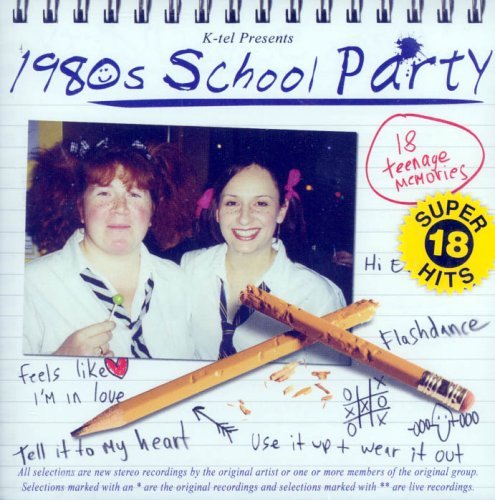 K-tel Presents
1980s School Party
18
teenage
memories
SUPER
18
HITS
Hi E
Flashdance
feels like
I'm in love
Tell it to My heart
Use it up + wear it out
O
X O X
X O
O X
All selections are new stereo recordings by the original artist or one or more members of the original group.
Selections marked with an * are the original recordings and selections marked with ** are live recordings.